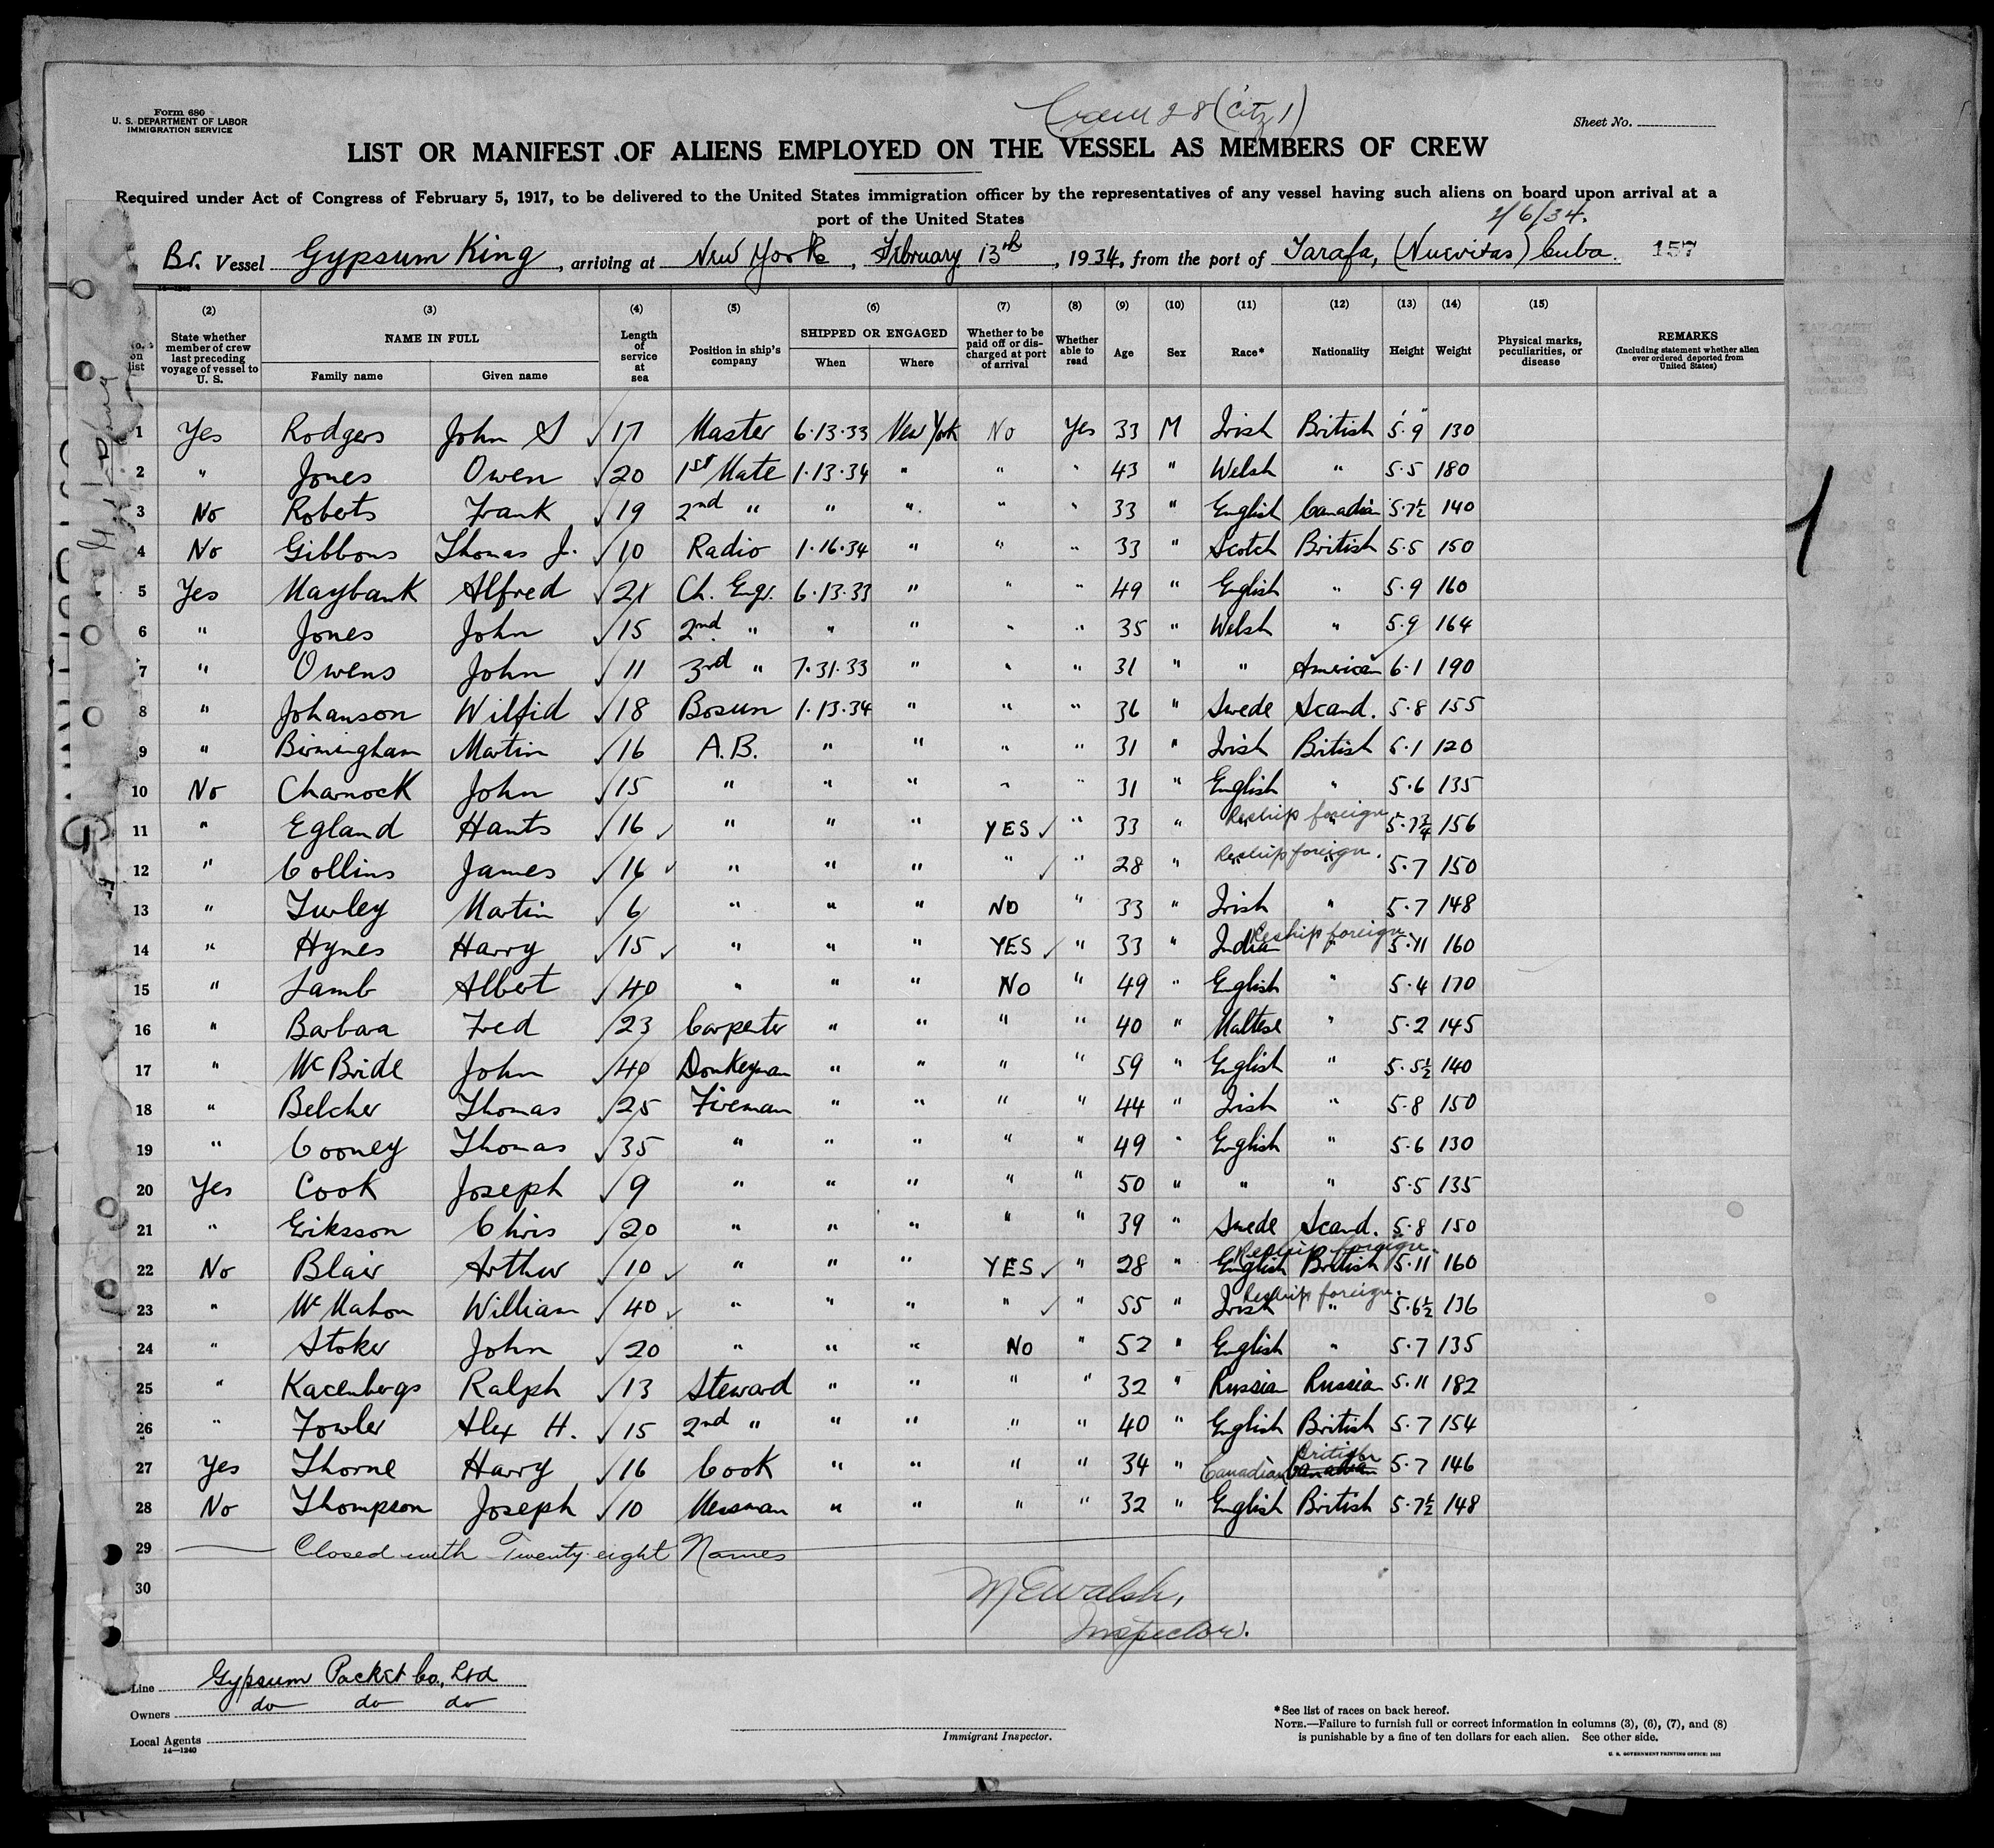 Crew 28 (Citz 1)
Form 680
U. S. DEPARTMENT OF LABOR
IMMIGRATION SERVICE
Sheet No.
LIST OR MANIFEST OF ALIENS EMPLOYED ON THE VESSEL AS MEMBERS OF CREW
Required under Act of Congress of February 5, 1917, to be delivered to the United States immigration officer by the representatives of any vessel having such aliens on board upon arrival at a
port of the United States
2/6/34.
Br. Vessel Gypsum King, arriving at New York, February 13th, 1934, from the port of Tarafa, (Nuevitas) Cuba. 157
(2) (3) (4) (5) (6) (7) (8) (9) (10) (11) (12) (13) (14) (15)
No. on list State whether member of crew last preceding voyage of vessel to U. S. NAME IN FULL Family name Given name Length of service at sea Position in ship's company SHIPPED OR ENGAGED When Where Whether to be paid off or discharged at port of arrival Whether able to read Age Sex Race* Nationality Height Weight Physical marks, peculiarities, or disease REMARKS (Including statement whether alien ever ordered deported from United States)
1 Yes Rodgers John S ✓ 17 Master 6·13·33 New York No Yes 33 M Irish British 5'·9" 130
2 " Jones Owen ✓ 20 1st Mate 1·13·34 " " " 43 " Welsh " 5·5 180
3 No Roberts Frank ✓ 19 2nd " " " " " 33 " English Canadian 5·7½ 140
4 No Gibbons Thomas J. ✓ 10 Radio 1·16·34 " " " 33 " Scotch British 5·5 150
5 Yes Maybank Alfred ✓ 21 Ch. Engr. 6·13·33 " " " 49 " English " 5·9 160
6 " Jones John ✓ 15 2nd " " " " " 35 " Welsh " 5·9 164
7 " Owens John ✓ 11 3rd " 7·31·33 " " " 31 " " American ✓ 6·1 190
8 " Johanson Wilfid ✓ 18 Bosun 1·13·34 " " " 36 " Swede Scand. 5·8 155
9 " Birmingham Martin ✓ 16 A.B. " " " " 31 " Irish British 5·1 120
10 No Charnock John ✓ 15 " " " " " 31 " English " 5·6 135
11 " Egland Hants ✓ 16 ✓ " " " YES ✓ " 33 " " Reship foreign " 5·7¾ 156
12 " Collins James ✓ 16 ✓ " " " " ✓ " 28 " " Reship foreign. " 5·7 150
13 " Turley Martin ✓ 6 " " " NO " 33 " Irish " 5·7 148
14 " Hynes Harry ✓ 15 ✓ " " " YES ✓ " 33 " Indian Reship foreign. " 5·11 160
15 " Lamb Albert ✓ 40 " " " No " 49 " English " 5·4 170
16 " Barbara Fred ✓ 23 Carpenter " " " " 40 " Maltese " 5·2 145
17 " McBride John ✓ 40 Donkeyman " " " " 59 " English " 5·5½ 140
18 " Belcher Thomas ✓ 25 Fireman " " " " 44 " Irish " 5·8 150
19 " Cooney Thomas ✓ 35 " " " " " 49 " English " 5·6 130
20 Yes Cook Joseph ✓ 9 " " " " " 50 " " " 5·5 135
21 " Eriksson Chris ✓ 20 " " " " " 39 " Swede Scand. 5·8 150
22 No Blair Arthur ✓ 10 ✓ " " " YES ✓ " 28 " English Reship foreign British 5·11 160
23 " McMahon William ✓ 40 ✓ " " " " ✓ " 55 " Irish Reship foreign. " 5·6½ 136
24 " Stoker John ✓ 20 " " " No " 52 " English " 5·7 135
25 " Kacenbergs Ralph ✓ 13 Steward " " " " 32 " Russian Russian 5·11 182
26 " Fowler Alex H. ✓ 15 2nd " " " " " 40 " English British 5·7 154
27 Yes Thorne Harry ✓ 16 Cook " " " " 34 " Canadian Canadian British 5·7 146
28 No Thompson Joseph ✓ 10 Messman " " " " 32 " English British 5·7½ 148
29 Closed with Twenty-eight Names
30 M E Walsh,
Inspector.
Line Gypsum Packet Co., Ltd
Owners do do do
Local Agents
14—1240
Immigrant Inspector.
*See list of races on back hereof.
NOTE.—Failure to furnish full or correct information in columns (3), (6), (7), and (8)
is punishable by a fine of ten dollars for each alien. See other side.